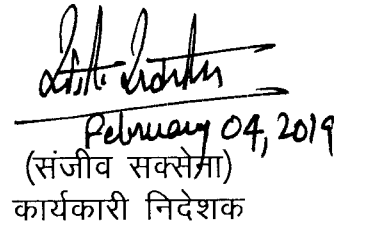 February 04, 2019
(संजीव सक्सेना)
कार्यकारी निदेशक